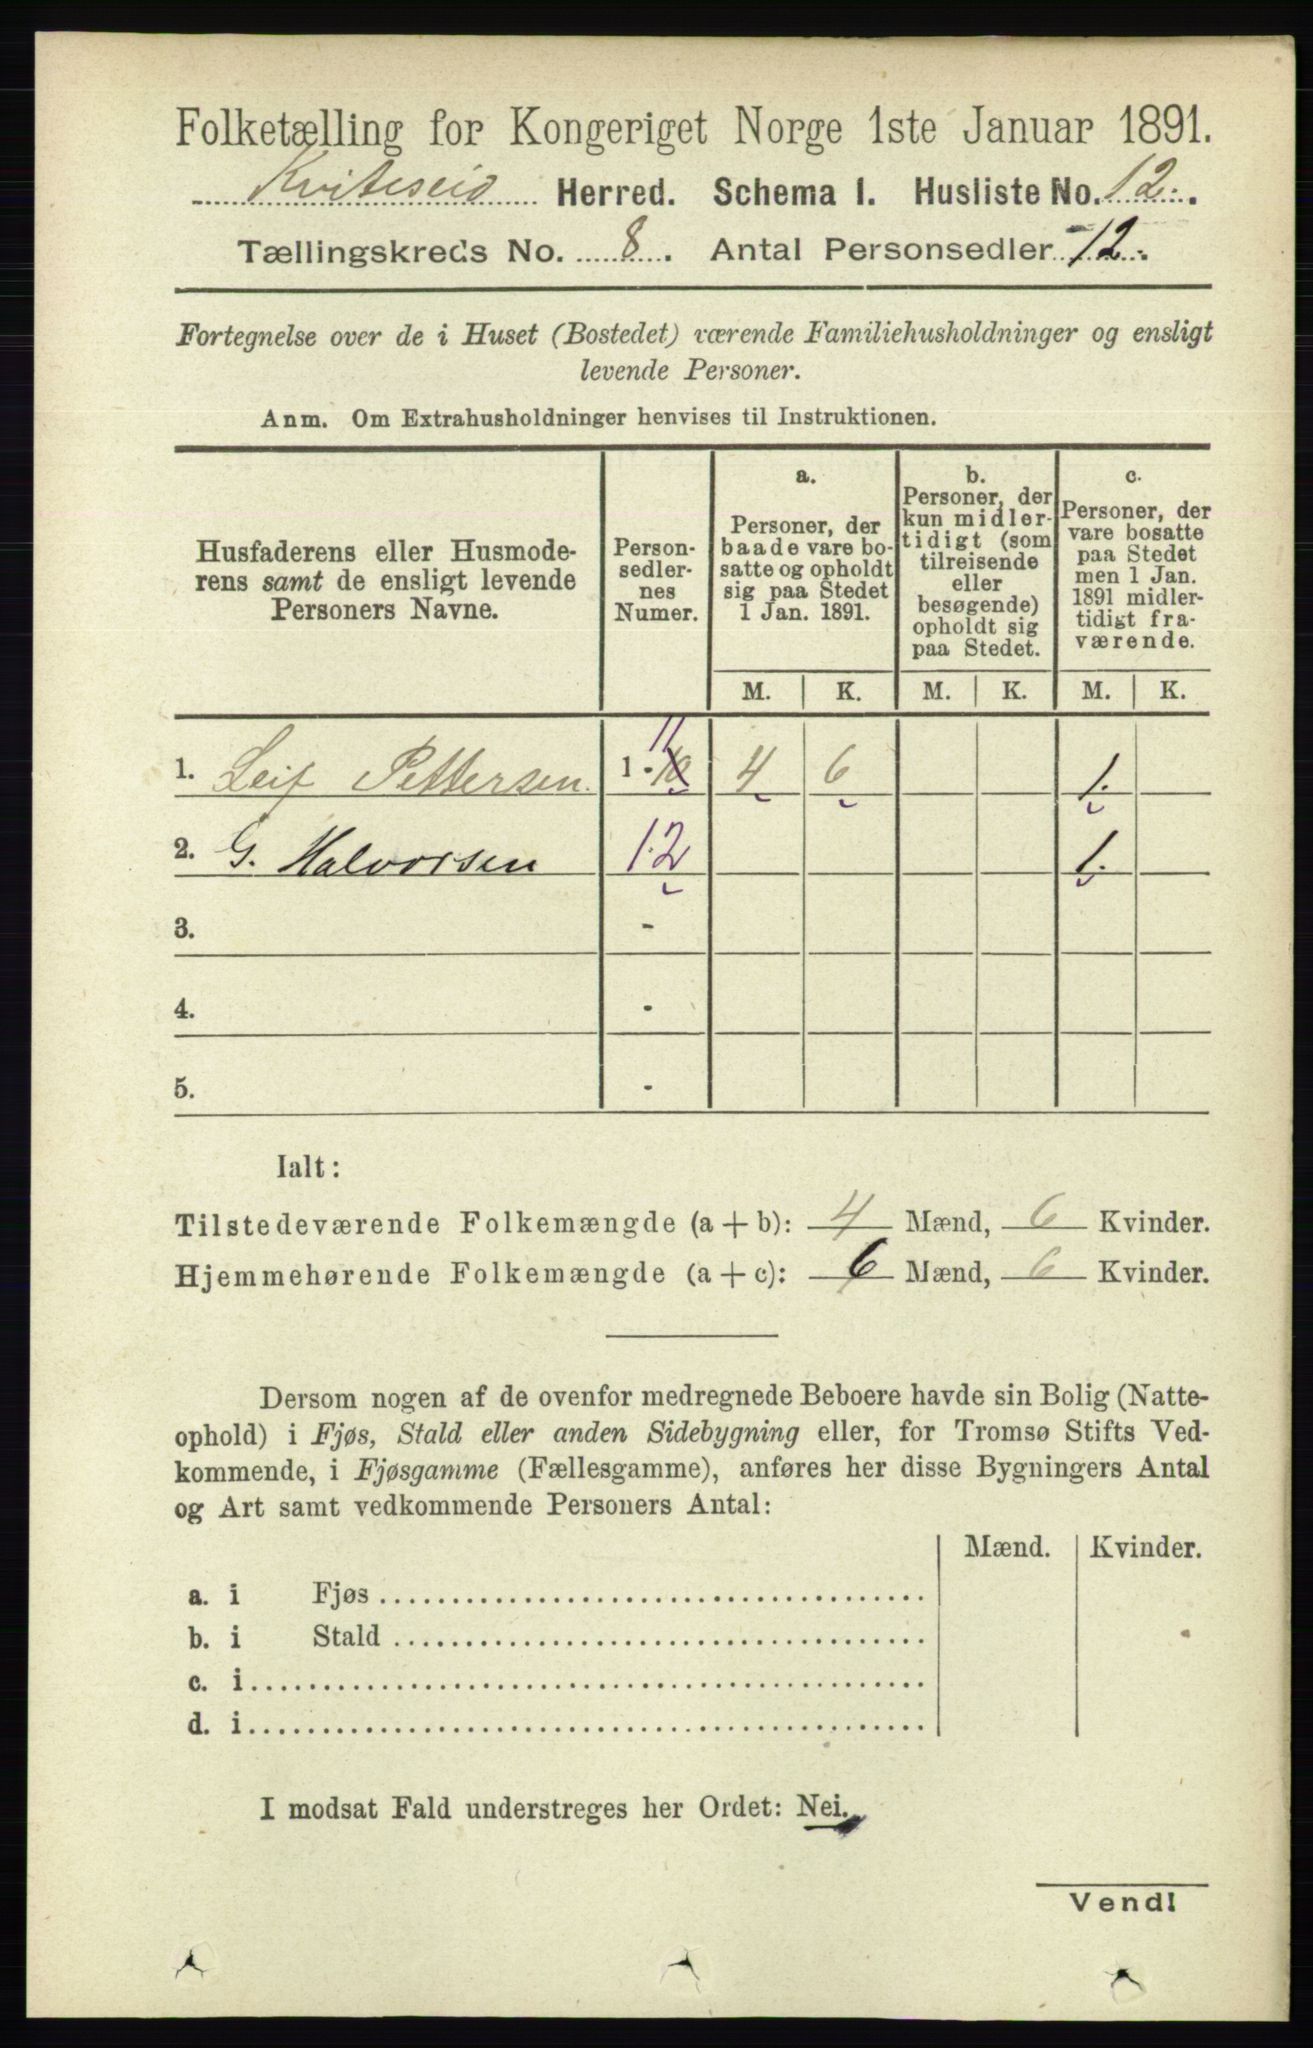 Folketælling for Kongeriget Norge 1ste Januar 1891.
Kviteseid Herred. Schema I. Husliste No. 12.
Tællingskreds No. 8. Antal Personsedler 12.
Fortegnelse over de i Huset (Bostedet) værende Familiehusholdninger og ensligt
levende Personer.
Anm. Om Extrahusholdninger henvises til Instruktionen.
Husfaderens eller Husmode-
rens samt de ensligt levende
Personers Navne.
Person-
sedler-
nes
Numer.
a.
Personer, der
baade vare bo-
satte og opholdt
sig paa Stedet
1 Jan. 1891.
b.
Personer, der
kun midler-
tidigt (som
tilreisende
eller
besøgende)
opholdt sig
paa Stedet.
c.
Personer, der
vare bosatte
paa Stedet
men 1 Jan.
1891 midler-
tidigt fra-
værende.
M. K. M. K. M. K.
11
1. Leif Pettersen. 1 - 10 4 6 1.
2. G. Halvorsen 12 1.
3. -
4. -
5. -
Ialt:
Tilstedeværende Folkemængde (a + b): 4 Mænd, 6 Kvinder.
Hjemmehørende Folkemængde (a + c): 6 Mænd, 6 Kvinder.
Dersom nogen af de ovenfor medregnede Beboere havde sin Bolig (Natte-
ophold) i Fjøs, Stald eller anden Sidebygning eller, for Tromsø Stifts Ved-
kommende, i Fjøsgamme (Fællesgamme), anføres her disse Bygningers Antal
og Art samt vedkommende Personers Antal:
Mænd. Kvinder.
a. i Fjøs
b. i Stald
c. i
d. i
I modsat Fald understreges her Ordet: Nei.
Vend!